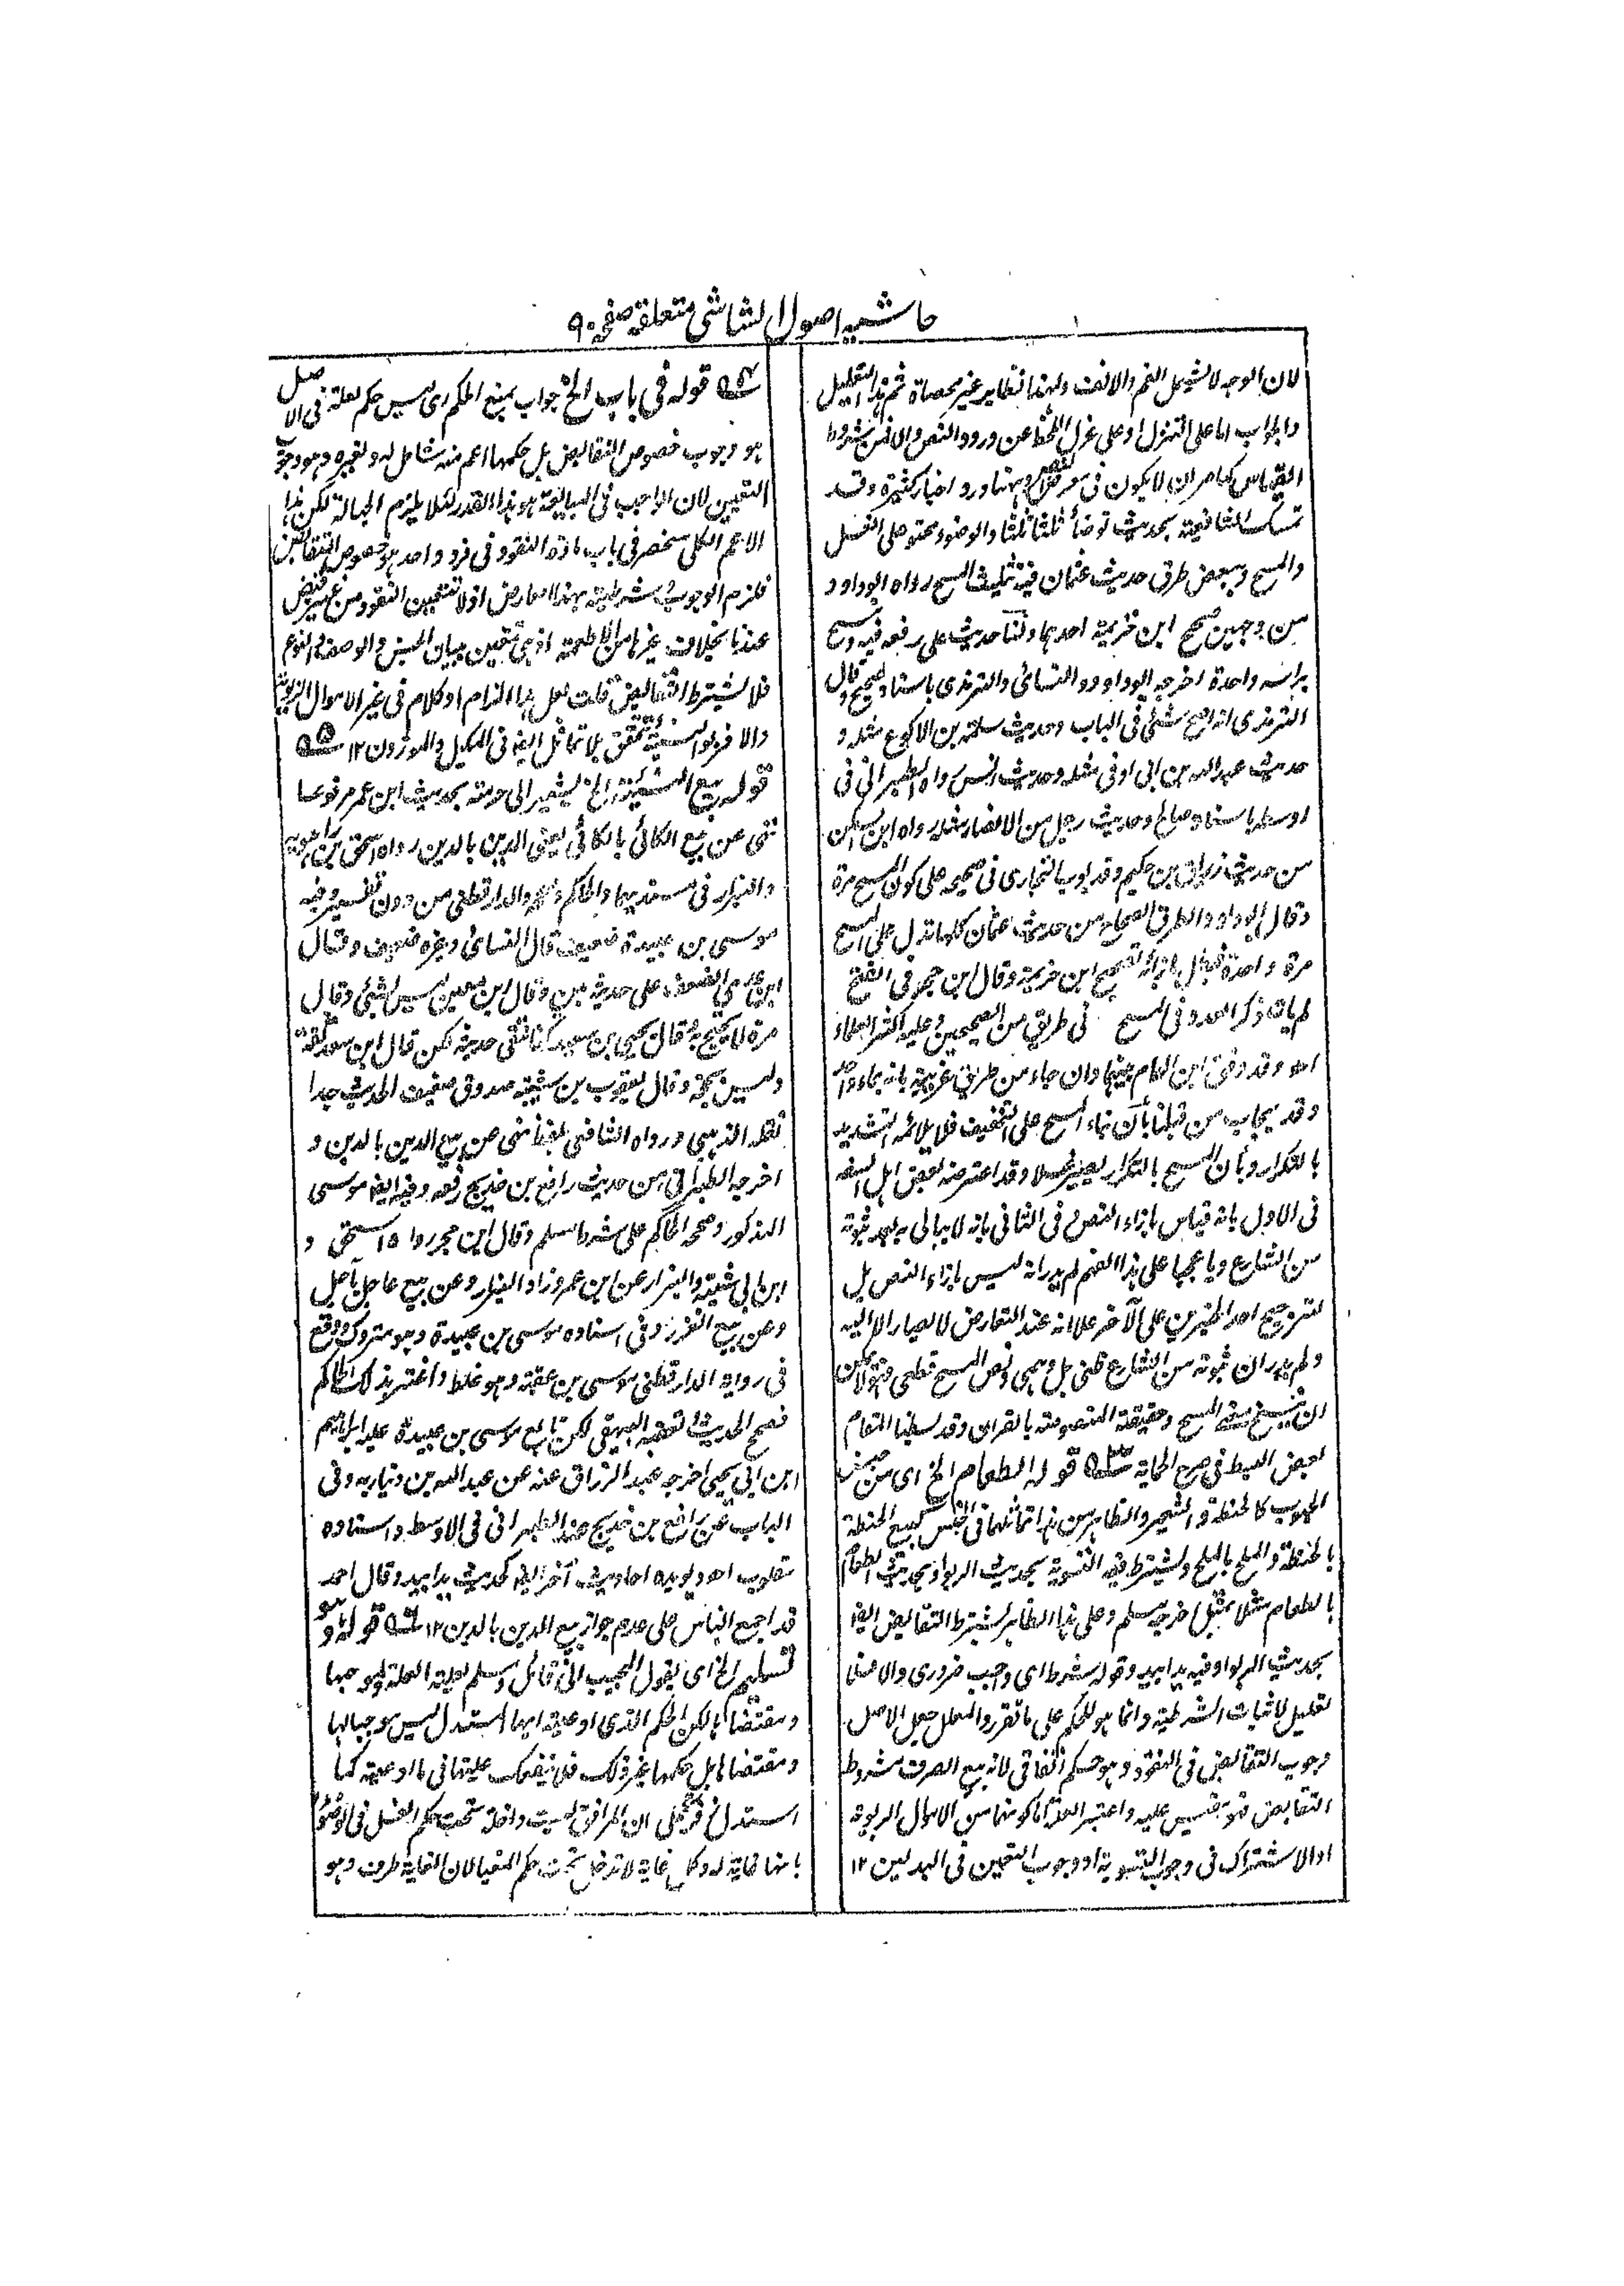 حاشیہ اصول الشاشی متعلقہ صفحہ ۹۰
لان الوجه لا يشمل الفم والانف ولهذا نظاير غير محصاة ثم هذا التعليل
والجواب اما على التنزل او على غزل اللحظ عن ورود النص والا فمن شروط
القياس كما مر ان لا يكون فى معرض النص وههنا ورد اخبار كثيرة وقد
تمسك الشافعية بحديث توضأ ثلثا ثلثا والوضوء محتو على الغسل
والمسح وببعض طرق حديث عثمان فيه تثليث المسح رواه ابوداود
من وجهين صحح ابن خزيمة احدهما ولنا حديث على رفعه فيه ومسح
براسه واحدة اخرجه ابوداود والنسائى والترمذى باسناد صحيح وقال
الترمذى انه اصح شئ فى الباب وحديث سلمة بن الاكوع مثله و
حديث عبدالله بن ابى اوفى مثله وحديث انس رواه الطبرانى فى
اوسطه باسناد صالح وحديث رجل من الانصار مثله رواه ابن السكن
من حديث زريق بن حكيم وقد بوب البخارى فى صحيحه على كون المسح مرة
وقال ابوداود الطرق الصحاح من حديث عثمان كلها تدل على المسح
مرة واحدة فيقال بازائه تصحيح ابن خزيمة وقال ابن حجر فى الفتح
لم يات ذكر العدد فى المسح فى طريق من الصحيحين وعليه اكثر العلماء
اھ وقد وفق ابن الهمام بينهما وان جاء من طريق غريبة بانه بماء واحد
وقد يجاب من قبلنا بأن بناء المسح على التخفيف فلا يلائمه التشديد
بالتكرار وبأن المسح بالتكرار يصير غسلا وقد اعترضه بعض اهل السفه
فى الاول بانه قياس بازاء النص وفى الثانى بانه لا يبالى به بعد ثبوته
من الشارع ويا عجبا على هذا الفهم لم يدر انه ليس بازاء النص بل
لترجيح احد الخبرين على الآخر علا انه عند التعارض لا يصار الا اليه
ولم يدر ان ثبوته من الشارع ظنى بل وهمى ونص المسح قطعى فهو لا يمكن
ان ينسخ صفة المسح وحقيقة المنصوصة بالقران وقد بسطنا المقام
بعض البسط فى صرح الحماية ٥٣ قوله الطعام الخ اى من جنس
الحبوب كالحنطة والشعير والظاهر من هذا تماثلهما فى الجنس كبيع الحنطة
بالحنطة والملح بالملح ويشترط فيه التسوية بحديث الربوا وبحديث الطعام
بالطعام مثلا بمثل اخرجه مسلم وعلى هذا الظاهر يشترط التقابض ايضا
بحديث الربوا وفيه يدا بيد وقوله شرط اى واجب ضرورى والا فلا
تعليل لاثبات الشرطية وانما هو للحكم على ما تقرر والمعلل جعل الاصل
وجوب التقابض فى النقود وهو حكم اتفاقى لانه بيع الصرف مشروط
التقابض فهو مقيس عليه واعتبر العلة اما كونهما من الاموال الربوية
او الاشتراك فى وجوب التسوية او وجوب التعيين فى البدلين ١٢
٥٤ قوله فى باب الخ جواب بمنع الحكم اى ليس حكم لعلة فى الاصل
هو وجوب خصوص التقابض بل حكمها اعم منه شامل له ولغيره وهو وجوب
التعيين لان الواجب فى المبايعة هو هذا القدر لئلا يلزم الجهالة لكن هذا
الاعم الكلى منحصر فى باب مادة النقود فى فرد واحد هو خصوص التقابض
فلزم الوجوب شرطيته بهذا العارض اذ لا تتعين النقود من غير قبض
عندنا بخلاف غيرها من الاطعمة اذ هى تتعين ببيان الجنس والوصف والنوع
فلا يشترط التقابض قلت لعل هذا الزام او كلام فى غير الاموال الربوية
والا فربوا النسيئة يتحقق بلا تماثل ايضا فى المكيل والموزون ١٢ ٥٥
قوله بيع النسيئة الخ يشير الى حرمته بحديث ابن عمر مرفوعا
نهى عن بيع الكالئ بالكالئ يعنى الدين بالدين رواه اسحق بن راهويه
والبزار فى مسنديهما والحاكم والدارقطنى من دون تفسير وفيه
موسى بن عبيدة ضعيف قال النسائى وغيره ضعيف وقال
ابن عدى الضعف على حديثه بين وقال ابن معين ليس بشئ وقال
مرة لا يحتج به وقال يحيى بن سعيد كنا نتقى حديثه لكن قال ابن سعد ثقة
وليس بحجة وقال يعقوب بن شيبة صدوق ضعيف الحديث جدا
نقله الذهبى ورواه الشافعى بلفظ نهى عن بيع الدين بالدين و
اخرجه الطبرانى من حديث رافع بن خديج رفعه وفيه ايضا موسى
المذكور وصححه الحاكم على شرط مسلم وقال ابن حجر رواه اسحق و
ابن ابى شيبة والبزار عن ابن عمر وزاد البزار وعن بيع عاجل بآجل
وعن بيع الغرر وفى اسناده موسى بن عبيدة وهو متروك ووقع
فى رواية الدارقطنى موسى بن عقبة وهو غلط واغتر بذلك الحاكم
فصحح الحديث وتعقبه البيهقى لكن تابع موسى بن عبيدة عليه ابراهيم
ابن ابى يحيى اخرجه عبد الرزاق عنه عن عبد الله بن دينار به وفى
الباب عن رافع بن خديج عند الطبرانى فى الاوسط واسناده
مقلوب اھ ويؤيده احاديث آخر ايضا كحديث يدا بيد وقال احمد
قد اجمع الناس على عدم جواز بيع الدين بالدين ١٢ ٥٦ قوله وهو
تسليم الخ اى يقول المجيب انى قائل ومسلم لعلية العلة وموجبها
ومقتضاها لكن الحكم الذى ادعيته ايها المستدل ليس موجبا لها
ومقتضاها بل حكمها غير ذلك فلن ينفعك عليتها فيما ادعيته كما
استدل زفر على ان المرافق ليست داخلة تحت حكم الغسل فى الوضوء
بانها غاية له وكل غاية لا تدخل تحت حكم المغيا لان الغاية طرف وهو